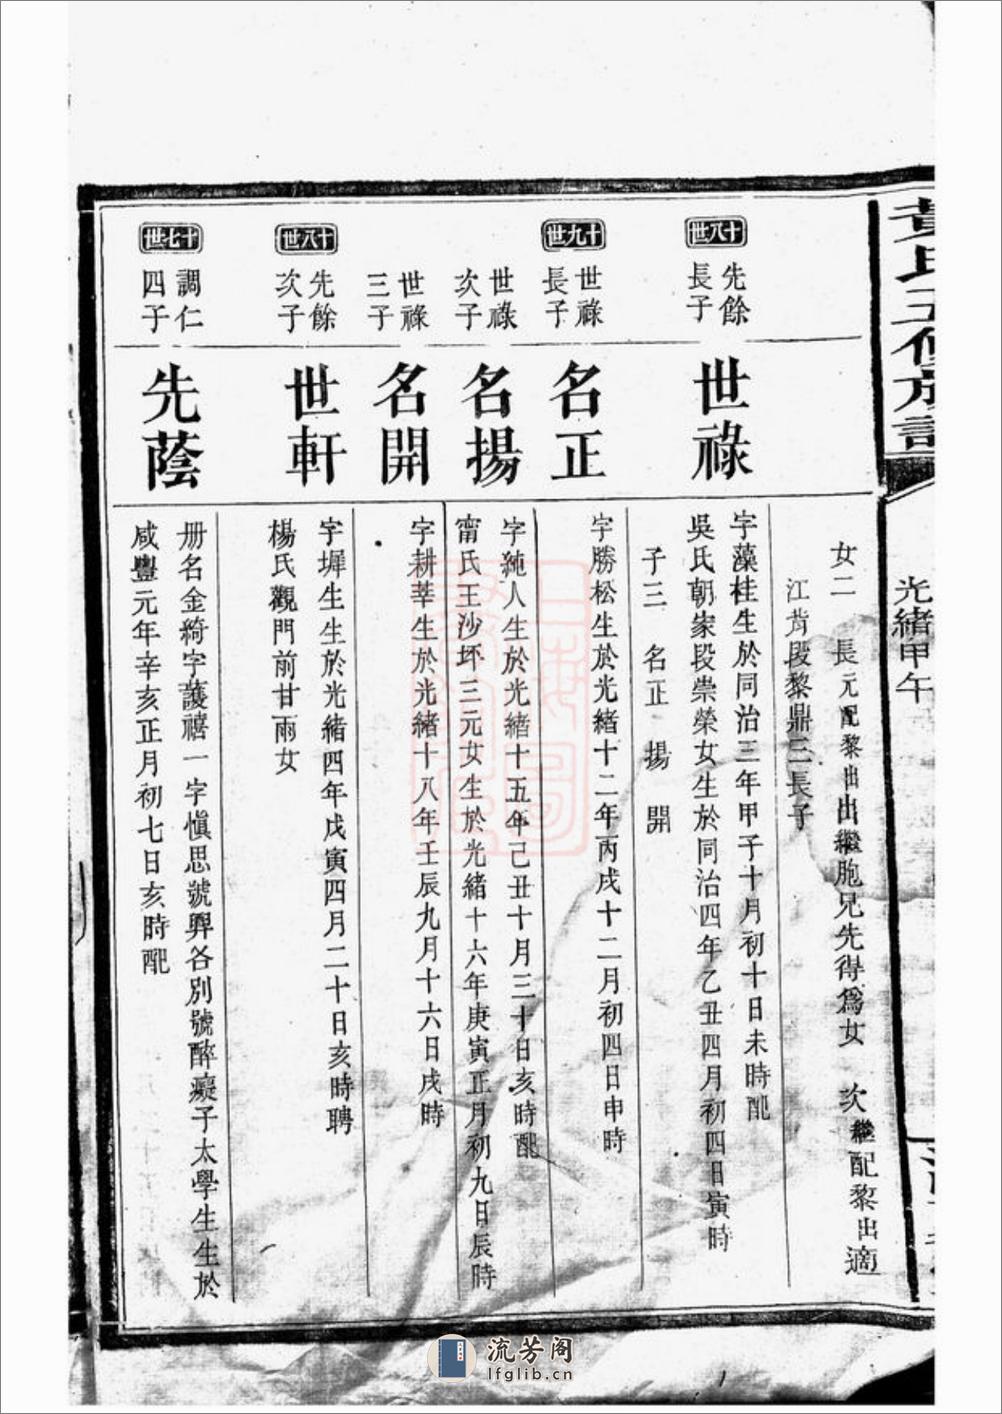 黃氏五修族譜
光緒甲午
女二 長元配黎出出繼胞兄先得爲女 次繼配黎出適
江背段黎鼎三長子
十八世
先餘
長子
世祿
字藻桂生於同治三年甲子十月初十日未時配
吳氏朝家段崇榮女生於同治四年乙丑四月初四日寅時
子三 名正 揚 開
十九世
世祿
長子
名正
字勝松生於光緒十二年丙戌十二月初四日申時
世祿
次子
名揚
字純人生於光緒十五年己丑十月三十日亥時配
甯氏王沙坪三元女生於光緒十六年庚寅正月初九日辰時
世祿
三子
名開
字耕莘生於光緒十八年壬辰九月十六日戌時
十八世
先餘
次子
世軒
字墀生生於光緒四年戊寅四月二十日亥時聘
楊氏觀門前甘雨女
十七世
調仁
四子
先蔭
册名金綺字護禧一字愼思號興各別號醉癡子太學生生於
咸豐元年辛亥正月初七日亥時配
流芳阁
lfglib.cn